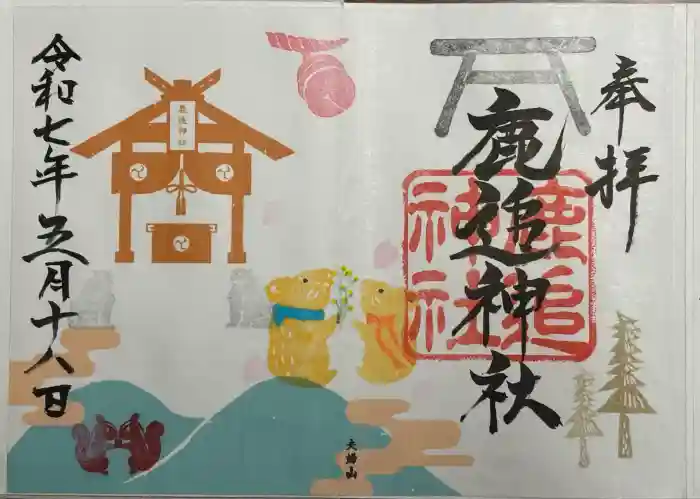 奉拝
鹿追神社
鹿追神社
令和七年五月十八日
鹿追神社
夫婦山